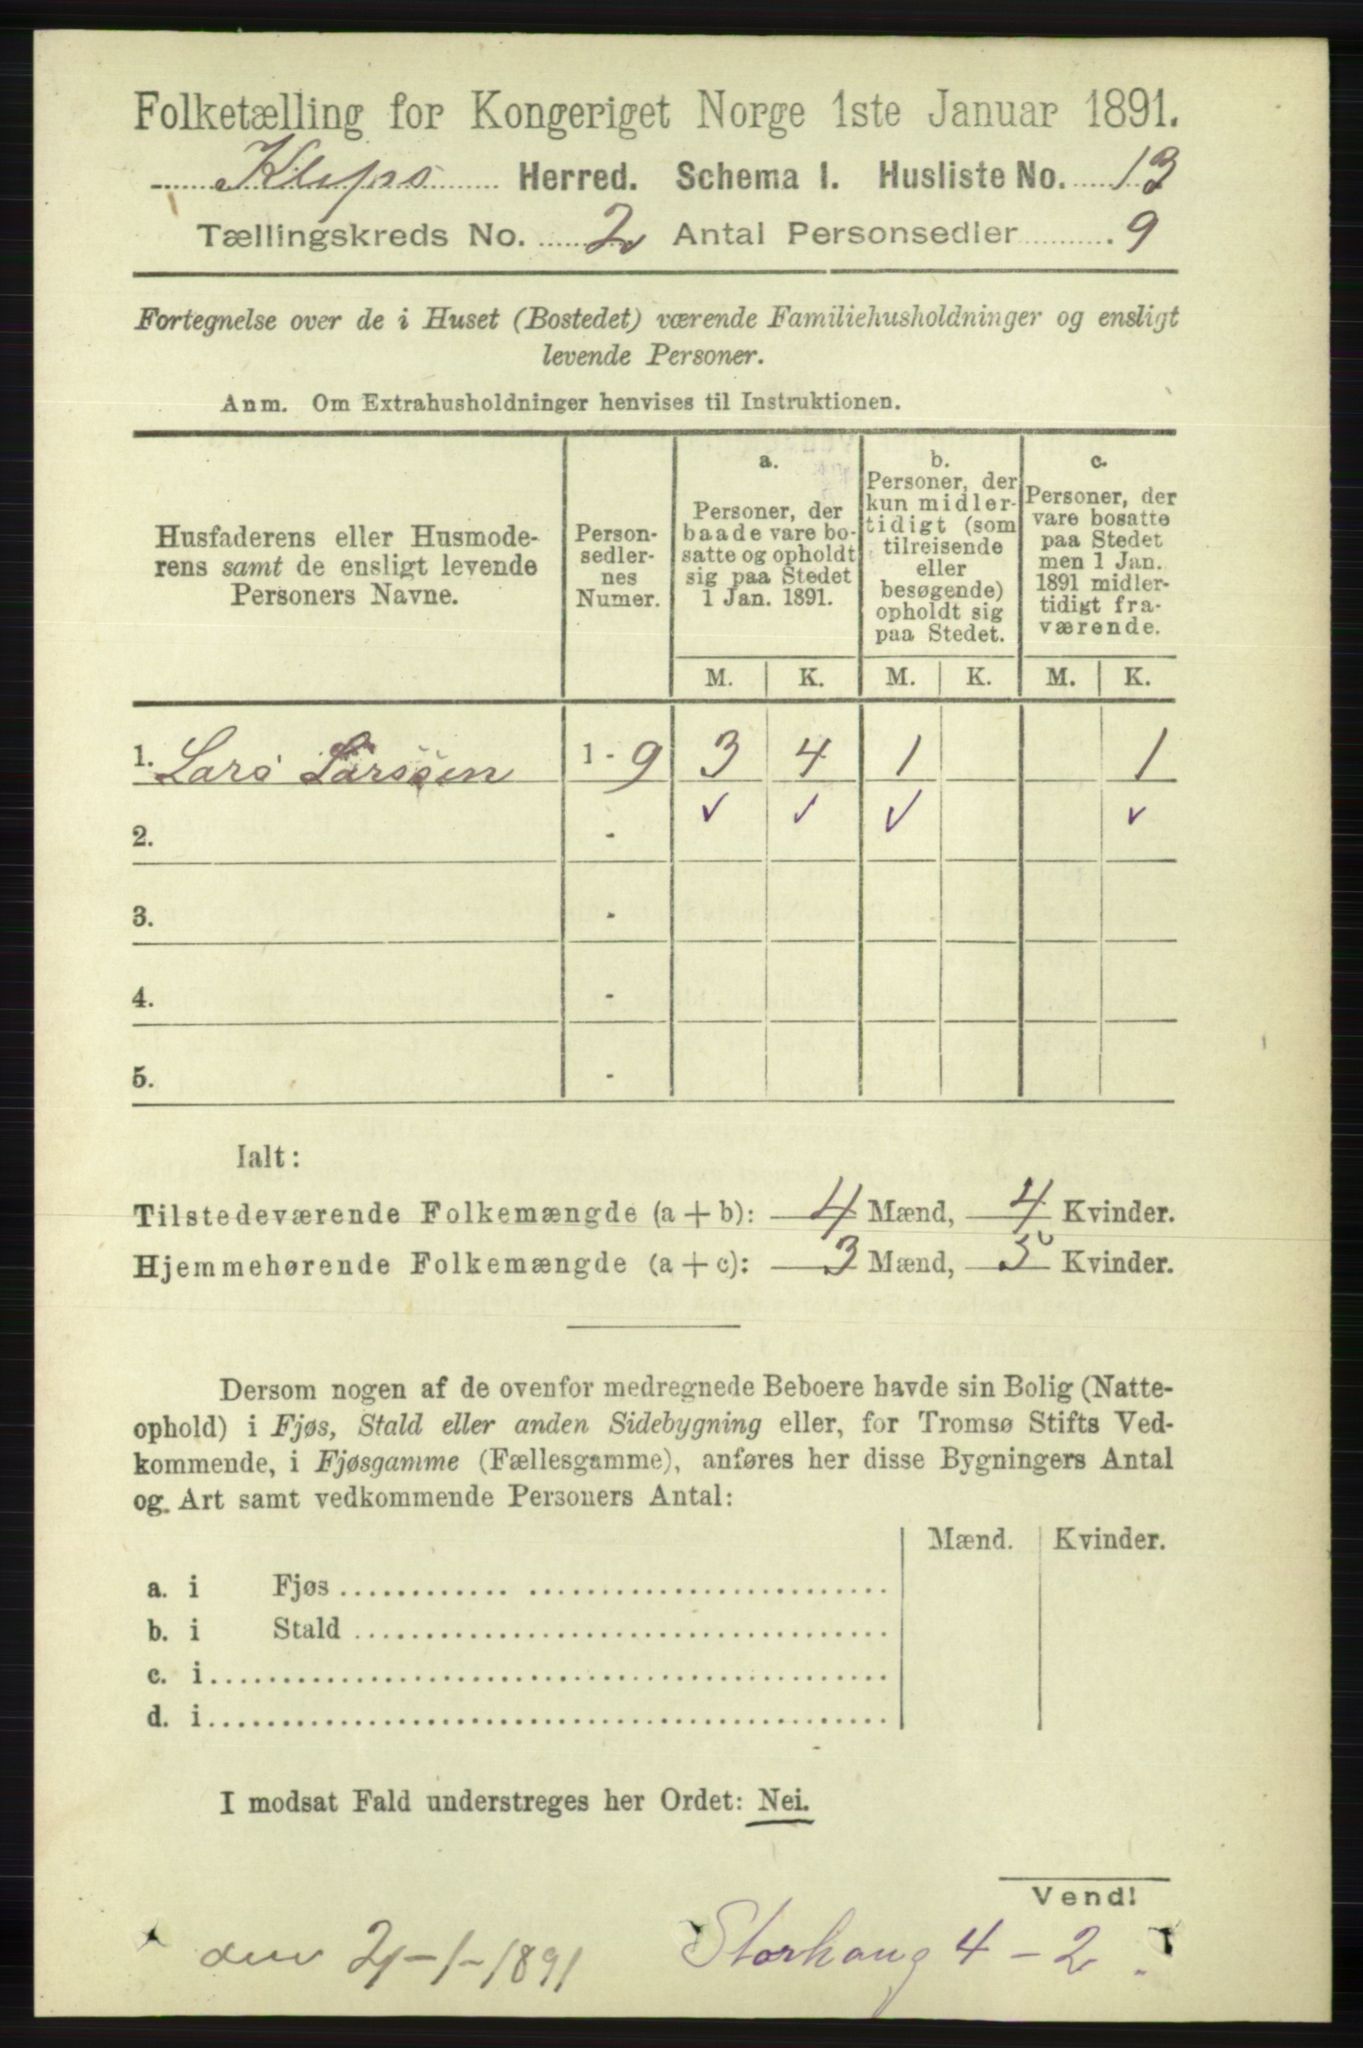 Folketælling for Kongeriget Norge 1ste Januar 1891.
Klepp Herred. Schema I. Husliste No. 13
Tællingskreds No. 2 Antal Personsedler 9
Fortegnelse over de i Huset (Bostedet) værende Familiehusholdninger og ensligt
levende Personer.
Anm. Om Extrahusholdninger henvises til Instruktionen.
Husfaderens eller Husmode-
rens samt de ensligt levende
Personers Navne.
Person-
sedler-
nes
Numer.
a.
Personer, der
baade vare bo-
satte og opholdt
sig paa Stedet
1 Jan. 1891.
b.
Personer, der
kun midler-
tidigt (som
tilreisende
eller
besøgende)
opholdt sig
paa Stedet.
c.
Personer, der
vare bosatte
paa Stedet
men 1 Jan.
1891 midler-
tidigt fra-
værende.
M. K. M. K. M. K.
1. Lars Larssen 1 - 9 3 4 1 1
2. - ✓ ✓ ✓ ✓
3. -
4. -
5. -
Ialt:
Tilstedeværende Folkemængde (a + b): 4 Mænd, 4 Kvinder.
Hjemmehørende Folkemængde (a + c): 3 Mænd, 5 Kvinder.
Dersom nogen af de ovenfor medregnede Beboere havde sin Bolig (Natte-
ophold) i Fjøs, Stald eller anden Sidebygning eller, for Tromsø Stifts Ved-
kommende, i Fjøsgamme (Fællesgamme), anføres her disse Bygningers Antal
og Art samt vedkommende Personers Antal:
Mænd. Kvinder.
a. i Fjøs
b. i Stald
c. i
d. i
I modsat Fald understreges her Ordet: Nei.
Vend!
den 2-1-1891 Storhaug 4-2